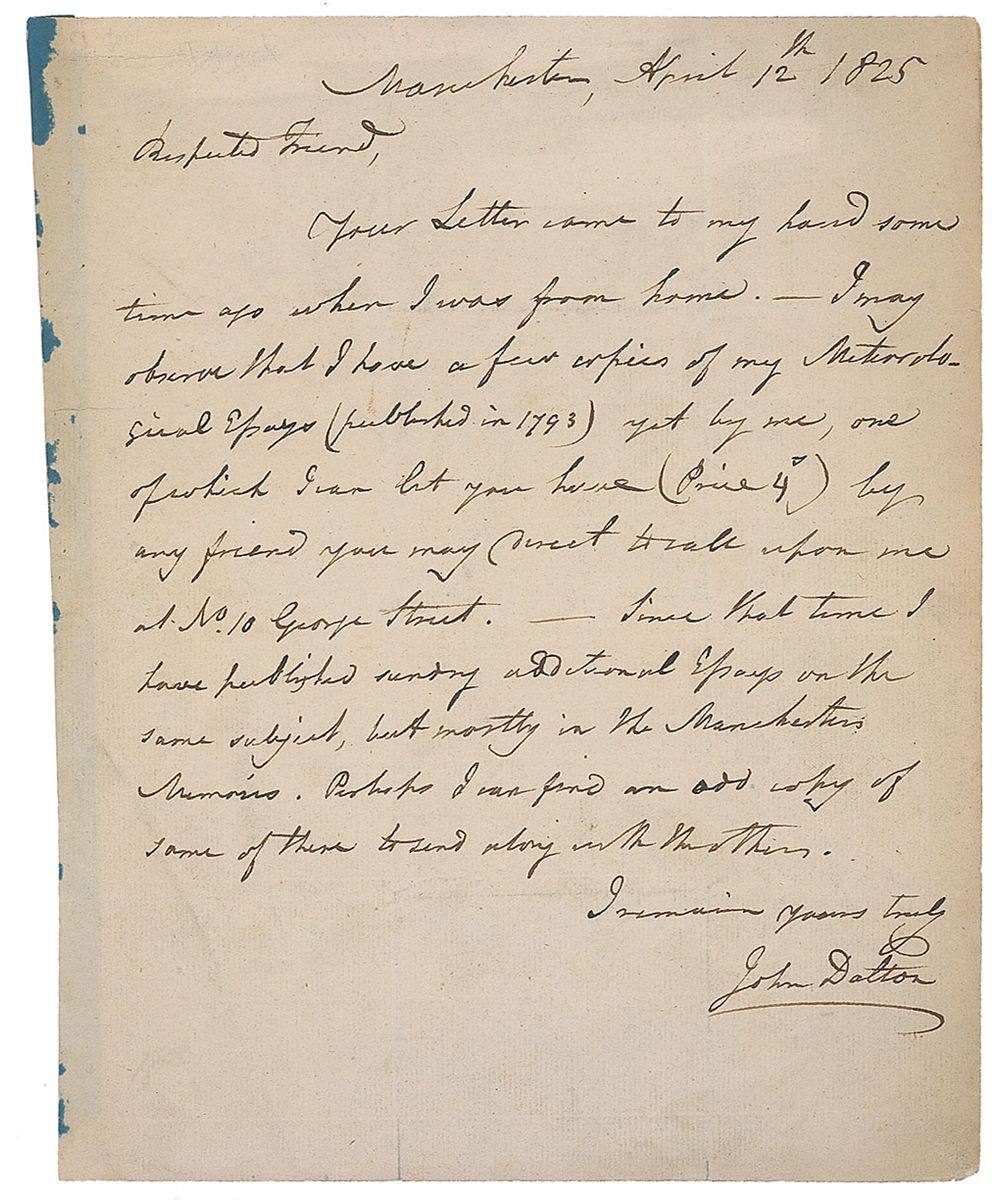 Manchester, April 12th 1825
Respected Friend,
Your Letter came to my hand some
time ago when I was from home. — I may
observe that I have a few copies of my Meteorolo-
gical Eſsays (published in 1793) yet by me, one
of which I can let you have (Price 4s) by
any friend you may direct to call upon me
at No. 10 George Street. — Since that time I
have published sundry additional Eſsays on the
same subject, but mostly in the Manchester
Memoirs. Perhaps I can find an odd copy of
some of these to send along with the others.
I remain yours truly
John Dalton